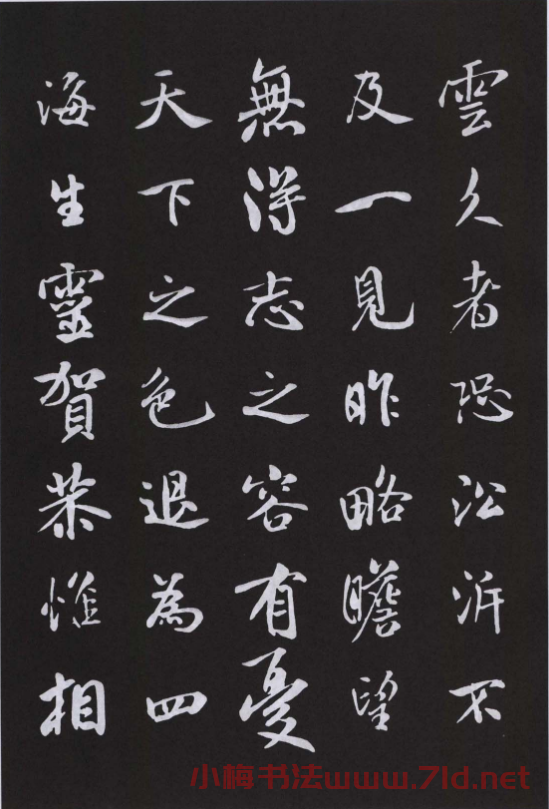 雲久者恐沿泝不
及一見昨略瞻望
無得志之容有憂
天下之色退為四
海生靈賀恭惟相
小梅书法www.7ld.net